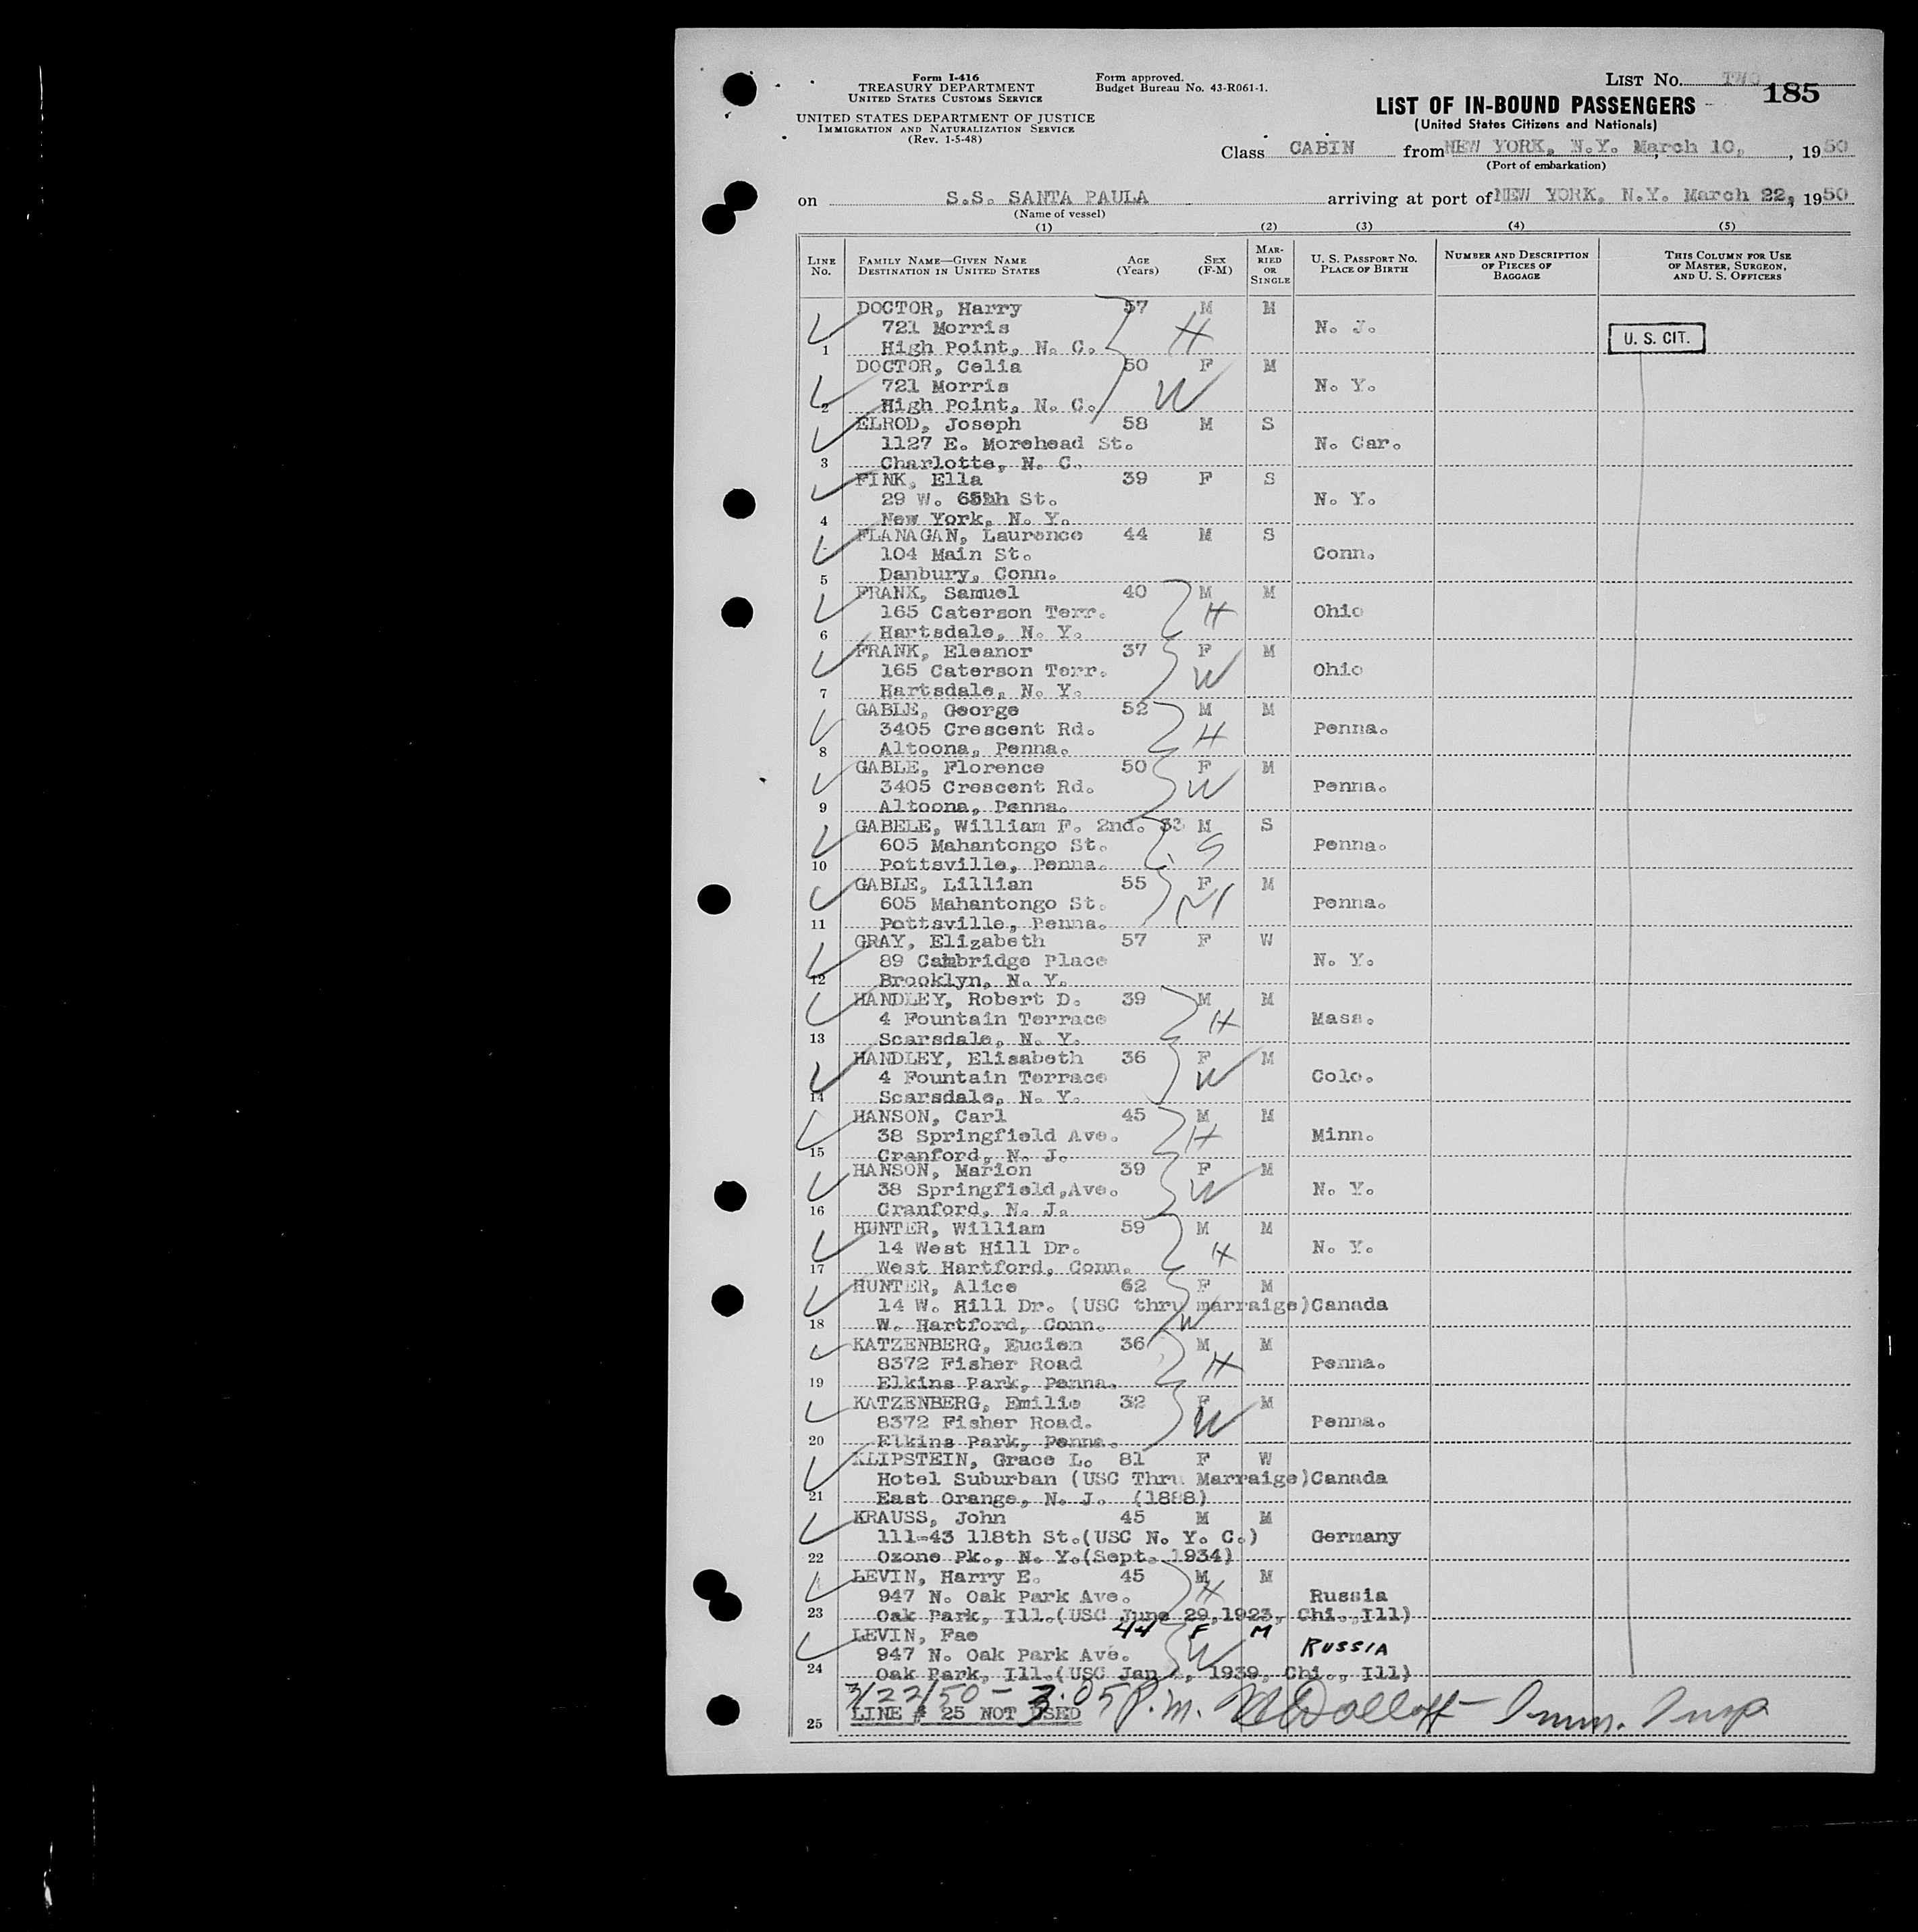 Form I-416
TREASURY DEPARTMENT
UNITED STATES CUSTOMS SERVICE
UNITED STATES DEPARTMENT OF JUSTICE
IMMIGRATION AND NATURALIZATION SERVICE
(Rev. 1-5-48)
Form approved.
Budget Bureau No. 43-R061-1.
LIST No. TWO
185
LIST OF IN-BOUND PASSENGERS
(United States Citizens and Nationals)
Class CABIN from NEW YORK, N.Y. March 10, , 1950
(Port of embarkation)
on S.S. SANTA PAULA arriving at port of NEW YORK, N.Y. March 22, 1950
(Name of vessel)
(1) (2) (3) (4) (5)
LINE No. FAMILY NAME—GIVEN NAME DESTINATION IN UNITED STATES AGE (Years) SEX (F-M) MARRIED OR SINGLE U. S. PASSPORT NO. PLACE OF BIRTH NUMBER AND DESCRIPTION OF PIECES OF BAGGAGE THIS COLUMN FOR USE OF MASTER, SURGEON, AND U. S. OFFICERS
DOCTOR, Harry 57 M M
721 Morris H N. J. U. S. CIT.
1 High Point, N. C.
DOCTOR, Celia 50 F M
721 Morris W N. Y.
2 High Point, N. C.
ELROD, Joseph 58 M S
1127 E. Morehead St. N. Car.
3 Charlotte, N. C.
FINK, Ella 39 F S
29 W. St. N. Y.
4 New York, N. Y.
FLANAGAN, Laurence 44 M S
104 Main St. Conn.
5 Danbury, Conn.
FRANK, Samuel 40 M M
165 Caterson Terr. H Ohio
6 Hartsdale, N. Y.
FRANK, Eleanor 37 F M
165 Caterson Terr. W Ohio
7 Hartsdale, N. Y.
GABLE, George 52 M M
3405 Crescent Rd. H Penna.
8 Altoona, Penna.
GABLE, Florence 50 F M
3405 Crescent Rd. W Penna.
9 Altoona, Penna.
GABELE, William F. 2nd. 33 M S
605 Mahantongo St. S Penna.
10 Pottsville, Penna.
GABLE, Lillian 55 F M
605 Mahantongo St. M Penna.
11 Pottsville, Penna.
GRAY, Elizabeth 57 F W
89 Cambridge Place N. Y.
12 Brooklyn, N. Y.
HANDLEY, Robert D. 39 M M
4 Fountain Terrace H Mass.
13 Scarsdale, N. Y.
HANDLEY, Elisabeth 36 F M
4 Fountain Terrace W Colo.
14 Scarsdale, N. Y.
HANSON, Carl 45 M M
38 Springfield Ave. H Minn.
15 Cranford, N. J.
HANSON, Marion 39 F M
38 Springfield,Ave. W N. Y.
16 Cranford, N. J.
HUNTER, William 59 M M
14 West Hill Dr. H N. Y.
17 West Hartford, Conn.
HUNTER, Alice 62 F M
14 W. Hill Dr. (USC thru marraige)Canada
18 W. Hartford, Conn. W
KATZENBERG, Eucien 36 M M
8372 Fisher Road H Penna.
19 Elkins Park, Penna.
KATZENBERG, Emilie 32 F M
8372 Fisher Road. W Penna.
20 Elkins Park, Penna.
KLIPSTEIN, Grace L. 81 F W
Hotel Suburban (USC Thru Marraige)Canada
21 East Orange, N. J. (1888)
KRAUSS, John 45 M M
111-43 118th St.(USC N. Y. C.) Germany
22 Ozone Pk., N. Y.(Sept. 1934)
LEVIN, Harry E. 45 M M
947 N. Oak Park Ave. H Russia
23 Oak Park, Ill.(USC June 29,1923, Chi.,Ill)
LEVIN, Fae 44 F M
947 N. Oak Park Ave. W RUSSIA
24 Oak Park, Ill.(USC Jan , 1939, Chi., Ill)
3/22/50 - 3.05 P.m. Imm. Insp
25 LINE # 25 NOT USED